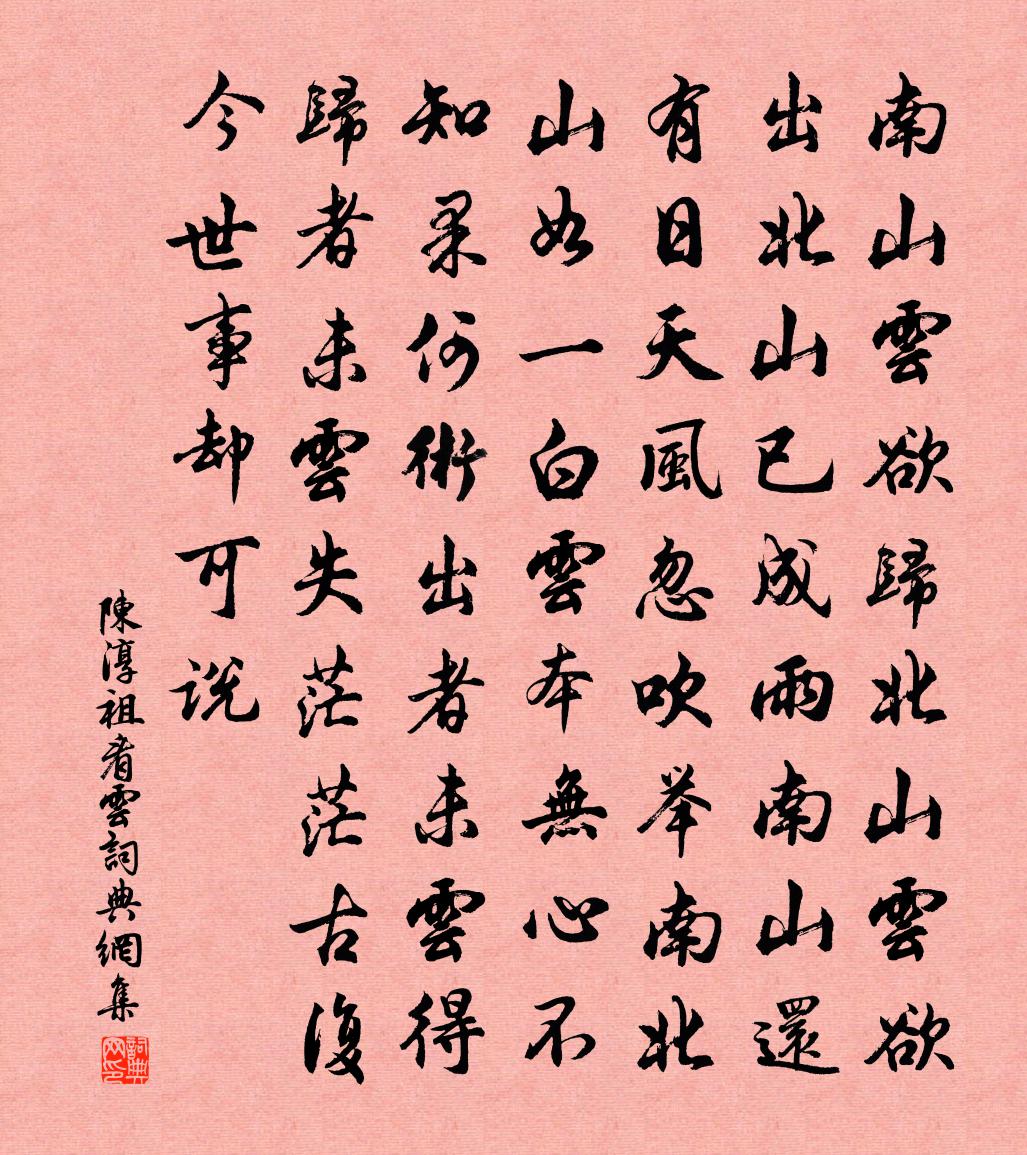 南山雲欲歸北山雲欲
出北山已成雨南山還
有日天風忽吹举南北
山如一白雲本無心不
知果何術出者未雲得
歸者未雲失茫茫古復
今世事却可説
陳淳祖看雲詞典網集
詞典网印